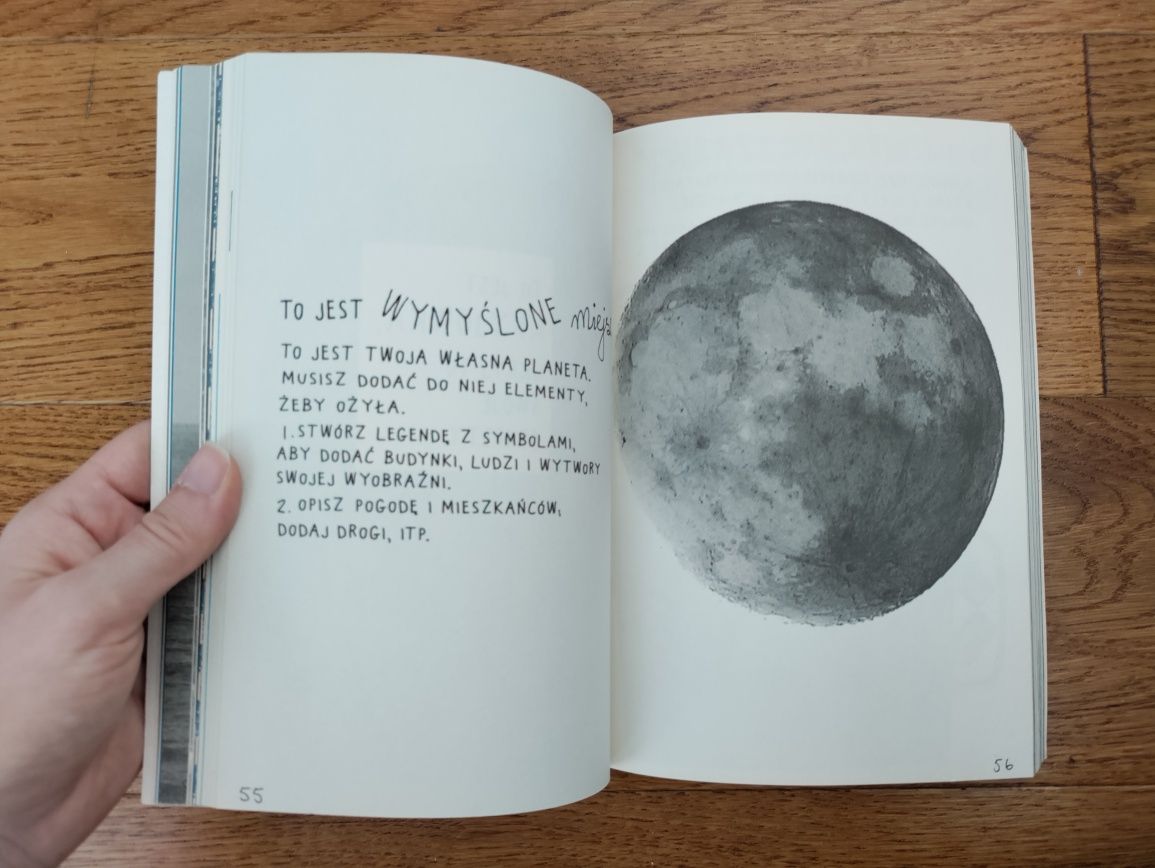 TO JEST WYMYŚLONE
TO JEST TWOJA WŁASNA PLANETA.
MUSISZ DODAĆ DO NIEJ ELEMENTY,
ŻEBY OŻYŁA.
1. STWÓRZ LEGENDĘ Z SYMBOLAMI,
ABY DODAĆ BUDYNKI, LUDZI I WYTWORY
SWOJEJ WYOBRAŹNI.
2. OPISZ POGODĘ I MIESZKAŃCÓW,
DODAJ DROGI, ITP.
55
56